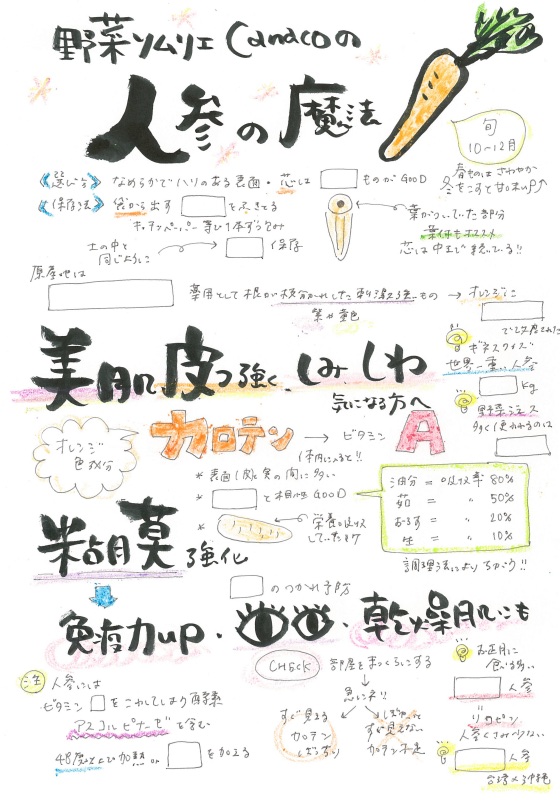 野菜ソムリエ Canacoの
人参の魔法
旬
10〜12月
春ものは さわやか
冬をこすと甘味UP↑
《選び方》 なめらかでハリのある表面・芯は ものがGOOD
《保存法》 袋から出す をふきとる
キッチンペーパー等で1本ずつ包み
土の中と
同じように
保存
葉がついていた部分
葉付もオススメ
芯は中まで続いている!!
原産地は
薬用として根が枝分かれした刺激強いもの → オレンジに
紫や黄色
美肌 皮フ強く、しみ、しわ
気になる方へ
ギネスクイズ
世界一重い人参
kg
野菜ジュース
多く使われるのは
オレンジ
色成分
カロテン → ビタミン A
(体内に入ると!!)
* 表面(皮と実の間に多い
* と相性GOOD
* 栄養吸収
していたます
油分 = 吸収率 80%
茹 = 〃 50%
おろす = 〃 20%
生 = 〃 10%
調理法によりちがう!!
粘膜 強化
のつかれ予防
免疫力up・ ・乾燥肌にも
CHECK 部屋をまっくらにする
急に末!!
すぐ見える
カロテン
ばっちり
しばらく
すぐ見えない
カロテン不足
お正月に
食べる赤い
人参
リコピン
人参くさみ少ない
人参
台湾や沖縄
注 人参には
ビタミン をこわしてしまう酵素
アスコルビナーゼを含む
48度以上で加熱 or を加える